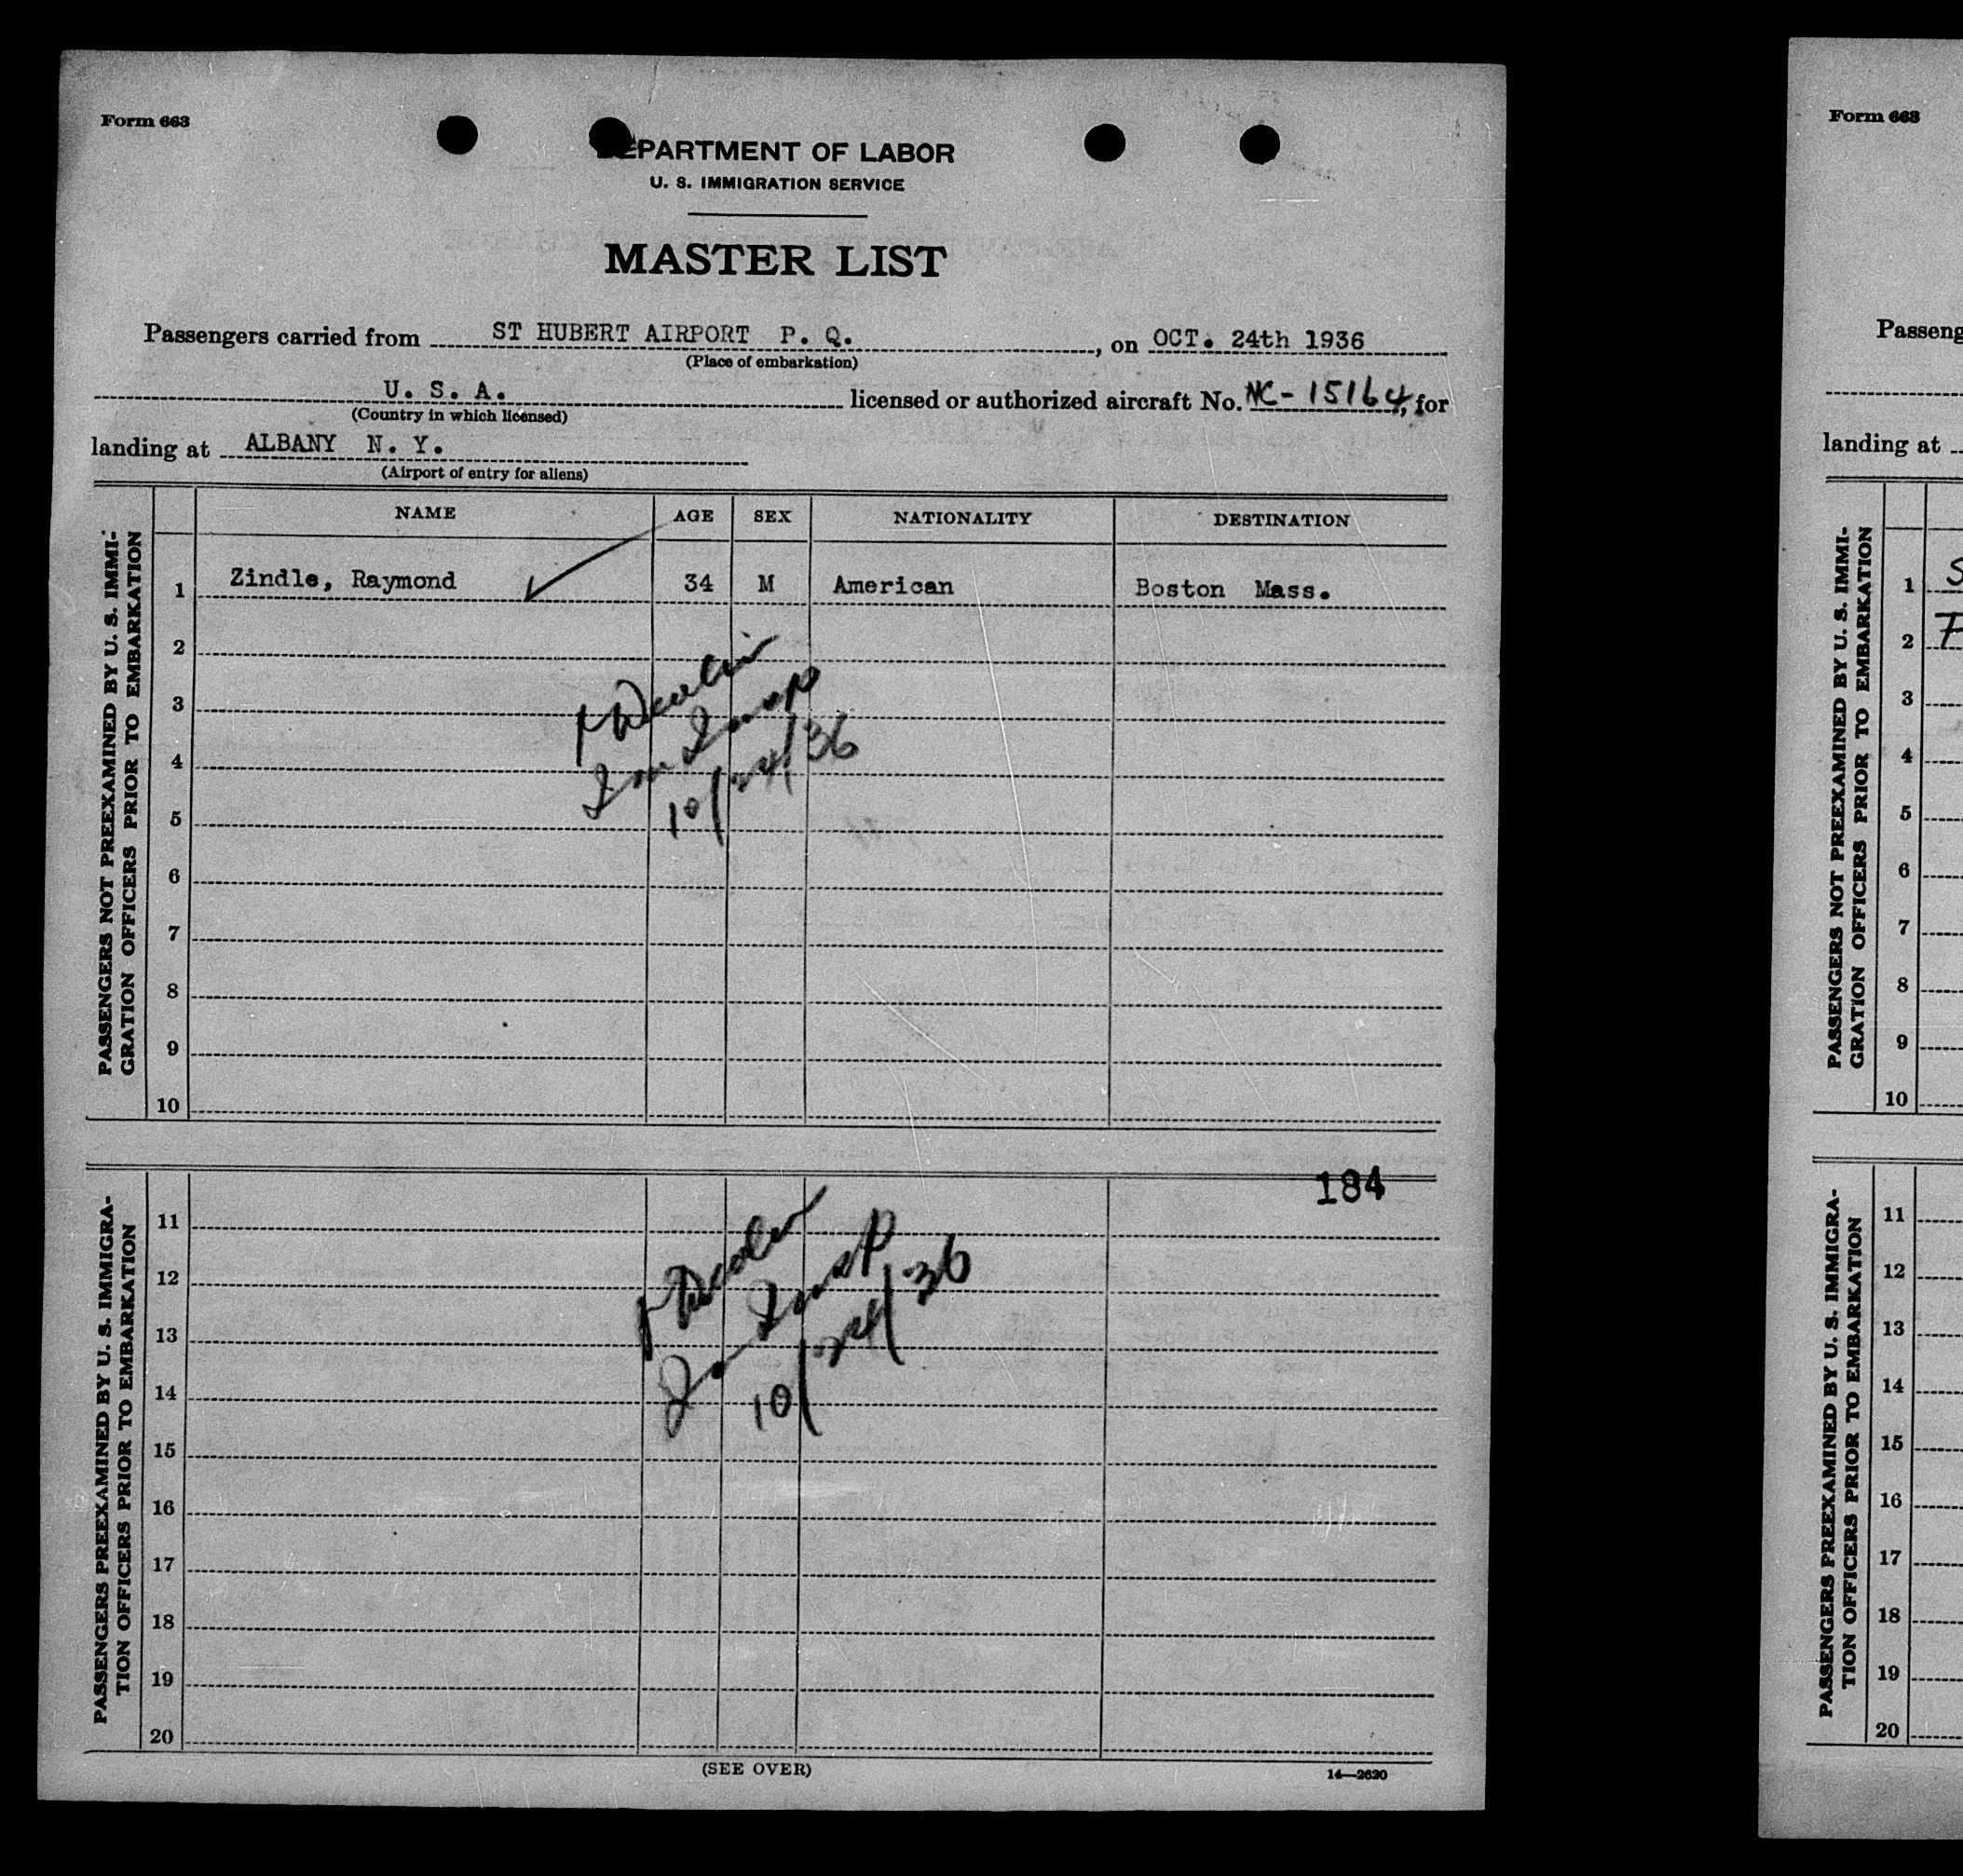 Form 663
DEPARTMENT OF LABOR
U. S. IMMIGRATION SERVICE
MASTER LIST
Passengers carried from ST HUBERT AIRPORT P. Q., on OCT. 24th 1936
(Place of embarkation)
U. S. A. licensed or authorized aircraft No. NC-15164, for
(Country in which licensed)
landing at ALBANY N. Y.
(Airport of entry for aliens)
PASSENGERS NOT PREEXAMINED BY U. S. IMMI-
GRATION OFFICERS PRIOR TO EMBARKATION
NAME AGE SEX NATIONALITY DESTINATION
1 Zindle, Raymond 34 M American Boston Mass.
2
3
4
5
6
7
8
9
10
Imm Insp
10/24/36
184
PASSENGERS PREEXAMINED BY U. S. IMMIGRA-
TION OFFICERS PRIOR TO EMBARKATION
11
12
13
14
15
16
17
18
19
20
Imm Insp
10/24/36
(SEE OVER)
14—2620
Form 663
Passeng
landing at
PASSENGERS NOT PREEXAMINED BY U. S. IMMI-
GRATION OFFICERS PRIOR TO EMBARKATION
1
2
3
4
5
6
7
8
9
10
PASSENGERS PREEXAMINED BY U. S. IMMIGRA-
TION OFFICERS PRIOR TO EMBARKATION
11
12
13
14
15
16
17
18
19
20